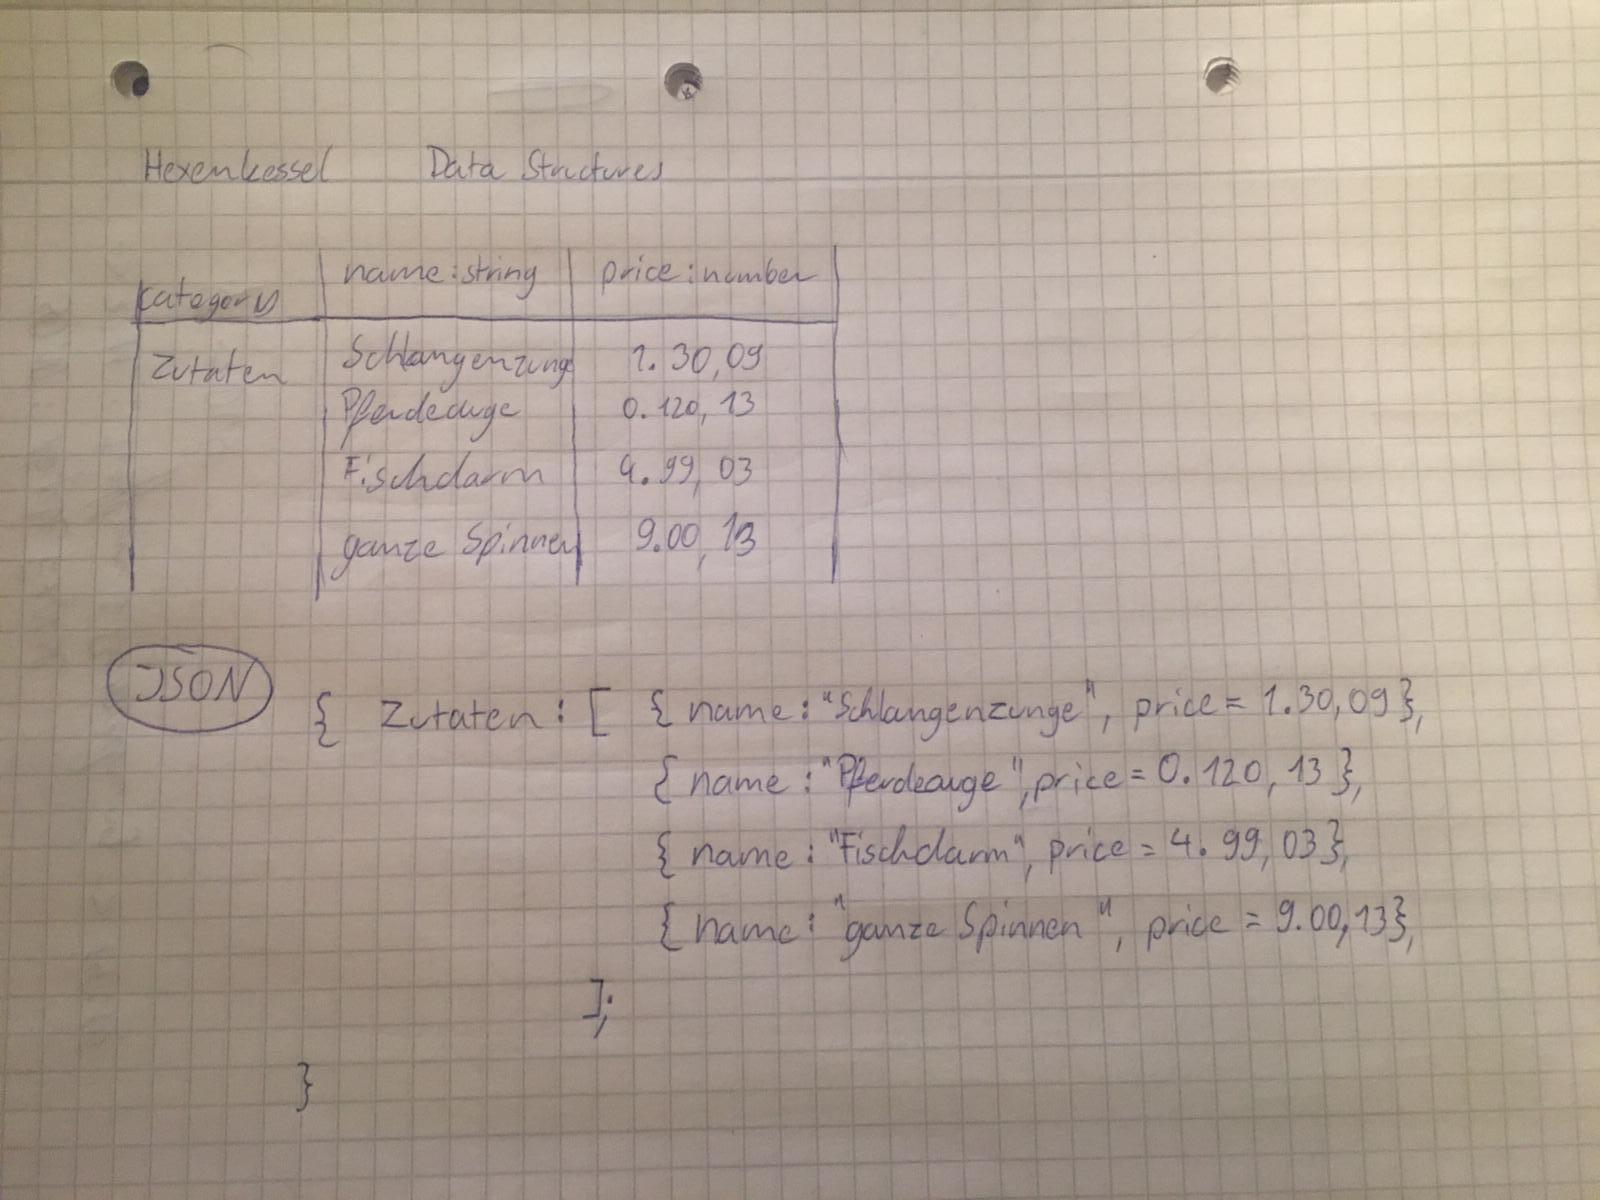 Hexenkessel Data Structures
category name:string price:number
Zutaten Schlangenzung 1.30,09
Pferdeauge 0.120,13
Fischdarm 4.99,03
ganze Spinnen 9.00,13
JSON { Zutaten: [ { name: "Schlangenzunge", price = 1.30,09},
{ name: "Pferdeauge", price = 0.120,13},
{ name: "Fischdarm", price = 4.99,03},
{ name: "ganze Spinnen", price = 9.00,13},
];
}